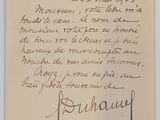 Monsieur, votre lettre m'a
touché le cœur. Le nom de
Monsieur votre père en
de vos lecteurs et suis
heureux de vous compter au
nombre de mes amis inconnus.
Croyez, je vous en prie, au
bien fidèle souvenir de
Duhamel